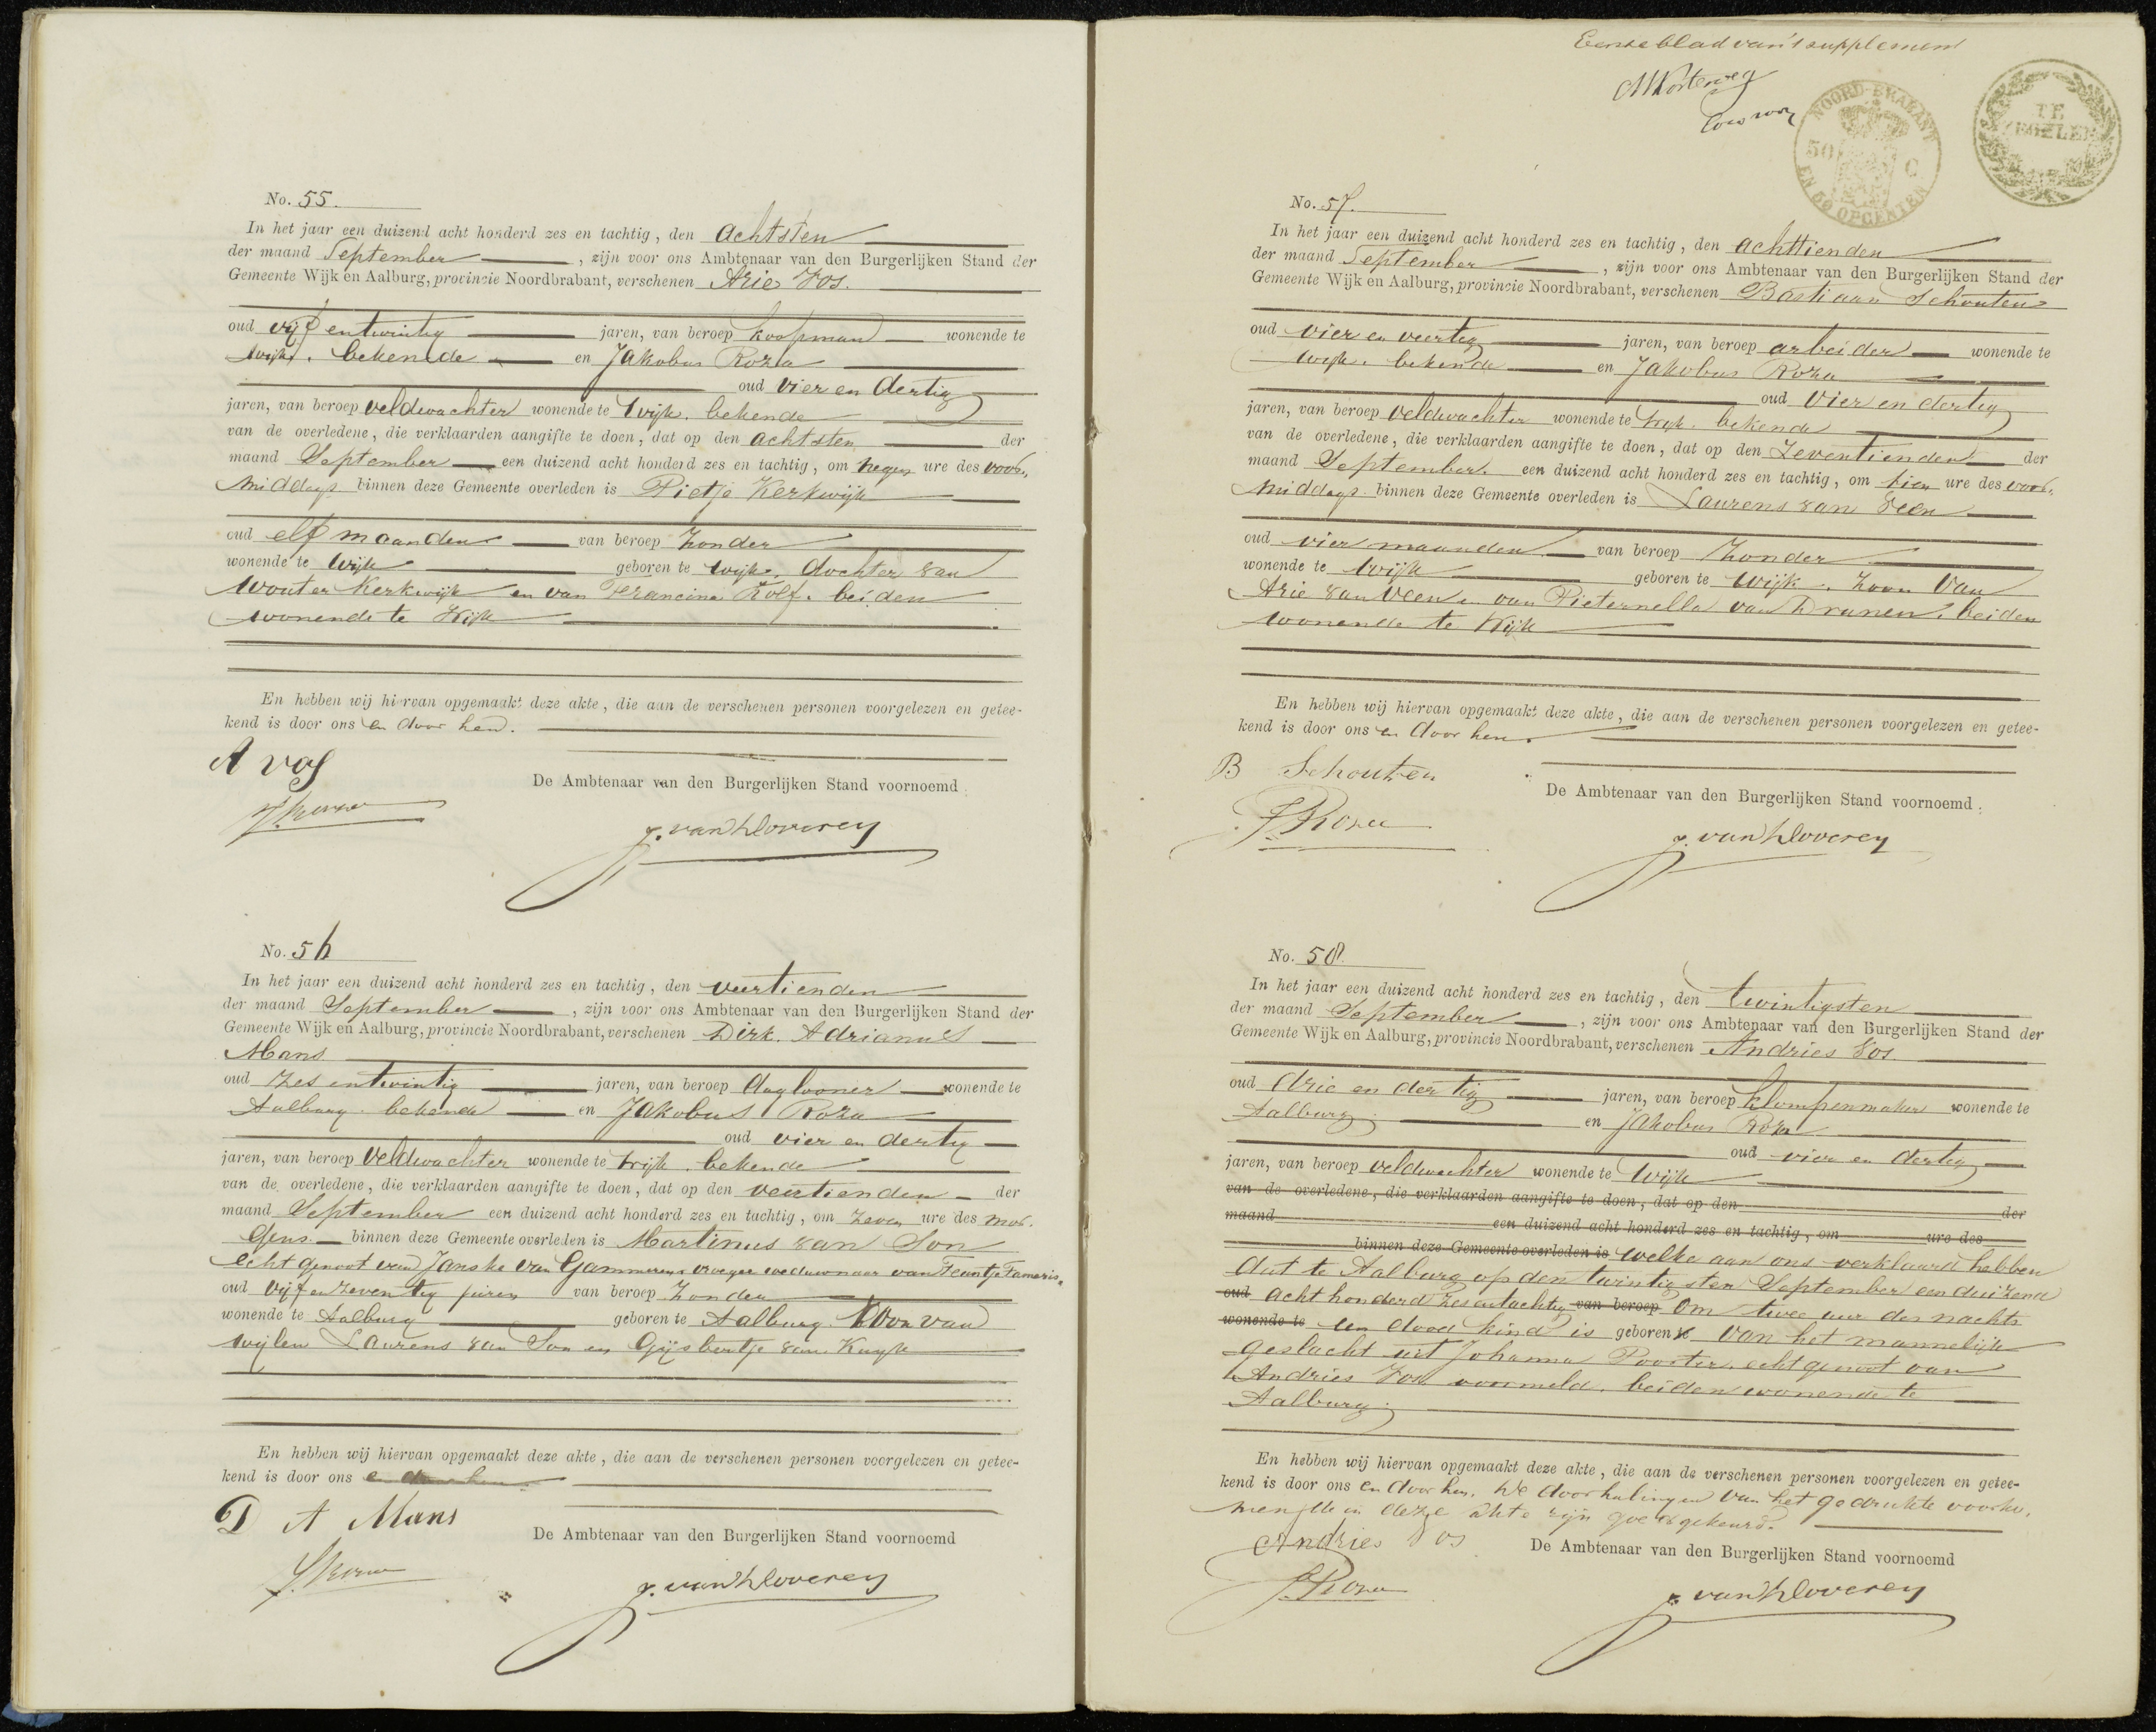 No. 55.
In het jaar een duizend acht honderd zes en tachtig, den achtsten
der maand September, zijn voor ons Ambtenaar van den Burgerlijken Stand der
Gemeente Wijk en Aalburg, provincie Noordbrabant, verschenen Arie Vos.
oud vijf entwintig jaren, van beroep koopman wonende te
Wijk. bekende en Jakobus Roza
oud vier en dertig
jaren, van beroep veldwachter wonende te Wijk. bekende
van de overledene, die verklaarden aangifte te doen, dat op den achtsten der
maand September een duizend acht honderd zes en tachtig, om negen ure des voor-
middags binnen deze Gemeente overleden is Pietje Kerkwijk
oud elf maanden van beroep Zonder
wonende te Wijk geboren te Wijk, dochter van
Wouter Kerkwijk en van Francina Kolf. beiden
wonende te Wijk
En hebben wij hiervan opgemaakt deze akte, die aan de verschenen personen voorgelezen en getee-
kend is door ons en door hen.
A vos
De Ambtenaar van den Burgerlijken Stand voornoemd:
J. Roza
J. van Kloveren
No. 56
In het jaar een duizend acht honderd zes en tachtig, den veertienden
der maand September, zijn voor ons Ambtenaar van den Burgerlijken Stand der
Gemeente Wijk en Aalburg, provincie Noordbrabant, verschenen Dirk Adrianus
Mans
oud zes entwintig jaren, van beroep daglooner wonende te
Aalburg. bekende en Jakobus Roza
oud vier en dertig
jaren, van beroep Veldwachter wonende te Wijk. bekende
van de overledene, die verklaarden aangifte te doen, dat op den veertienden der
maand September een duizend acht honderd zes en tachtig, om zeven ure des mor-
gens binnen deze Gemeente overleden is Martinus van Son
echtgenoot van Janske van Gammeren vroeger weduwnaar van Teuntje Tameris.
oud vijf en zeventig jaren van beroep Zonder
wonende te Aalburg geboren te Aalburg. Zoon van
wijlen Laurens van Son en Gijsbertje van Kuijk
En hebben wij hiervan opgemaakt deze akte, die aan de verschenen personen voorgelezen en getee-
kend is door ons en door hen
D A Mans
De Ambtenaar van den Burgerlijken Stand voornoemd
J. Roza
J. van Kloveren
Eerste blad van 't supplement
NOORD-BRABANT
50 C
EN 50 OPCENTEN
TE
ZEGELEN
No. 57.
In het jaar een duizend acht honderd zes en tachtig, den achttienden
der maand September, zijn voor ons Ambtenaar van den Burgerlijken Stand der
Gemeente Wijk en Aalburg, provincie Noordbrabant, verschenen Bastiaan Schouten
oud vier en veertig jaren, van beroep arbeider wonende te
Wijk. bekende en Jakobus Roza
oud vier en dertig
jaren, van beroep veldwachter wonende te Wijk. bekende
van de overledene, die verklaarden aangifte te doen, dat op den Zeventienden der
maand September. een duizend acht honderd zes en tachtig, om tien ure des voor-
middags binnen deze Gemeente overleden is Laurens van Veen
oud vier maanden van beroep Zonder
wonende te Wijk geboren te Wijk. Zoon van
Arie van Veen en van Pieternella van Drunen. beiden
wonende te Wijk
En hebben wij hiervan opgemaakt deze akte, die aan de verschenen personen voorgelezen en getee-
kend is door ons en door hen.
B Schouten
De Ambtenaar van den Burgerlijken Stand voornoemd:
J. Roza
J. van Kloveren
No. 58
In het jaar een duizend acht honderd zes en tachtig, den twintigsten
der maand September, zijn voor ons Ambtenaar van den Burgerlijken Stand der
Gemeente Wijk en Aalburg, provincie Noordbrabant, verschenen Andries Vos
oud drie en dertig jaren, van beroep klompenmaker wonende te
Aalburg en Jakobus Roza
oud vier en dertig
jaren, van beroep veldwachter wonende te Wijk
van de overledene, die verklaarden aangifte te doen, dat op den der
maand een duizend acht honderd zes en tachtig, om ure des
binnen deze Gemeente overleden is welke aan ons verklaard hebben
dat te Aalburg op den twintigsten September een duizend
oud acht honderd zes en tachtig van beroep om twee uur des nachts
wonende te een dood kind is geboren te van het mannelijk
geslacht uit Johanna Poorter. echtgenoot van
Andries Vos voormeld. beiden wonende te
Aalburg.
En hebben wij hiervan opgemaakt deze akte, die aan de verschenen personen voorgelezen en getee-
kend is door ons en door hen. De doorhalingen van het gedrukte voorko-
mende in deze akte zijn goedgekeurd.
Andries Vos
De Ambtenaar van den Burgerlijken Stand voornoemd
J. Roza
J. van Kloveren